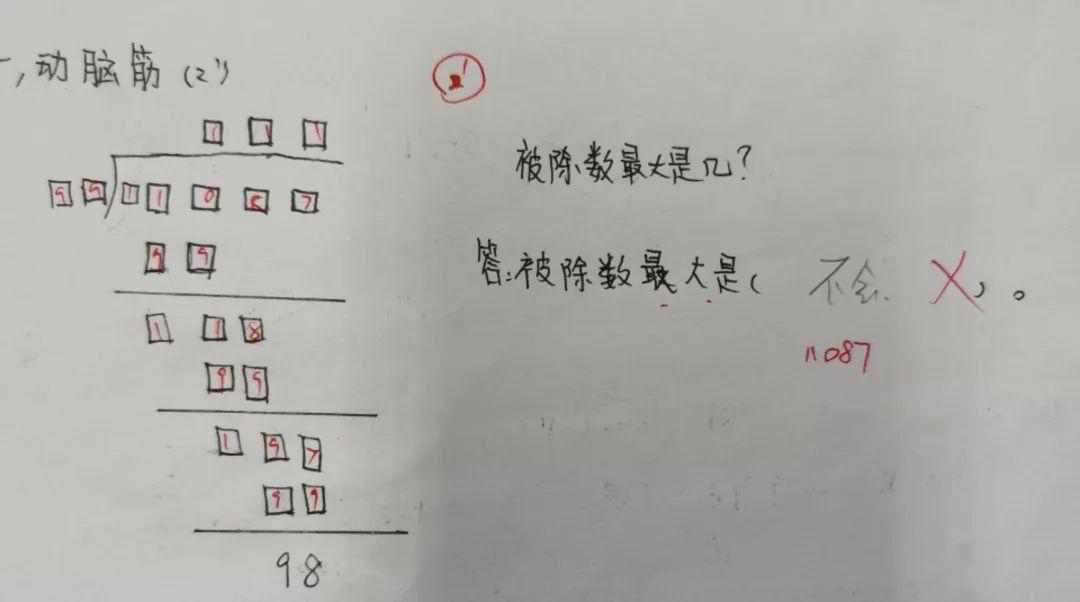 一,动脑筋(2')
2'
1 1 1
9 9 1 1 0 8 7
9 9
1 1 8
9 9
1 9 7
9 9
98
被除数最大是几?
答:被除数最大是( 不会. X ) 。
11087